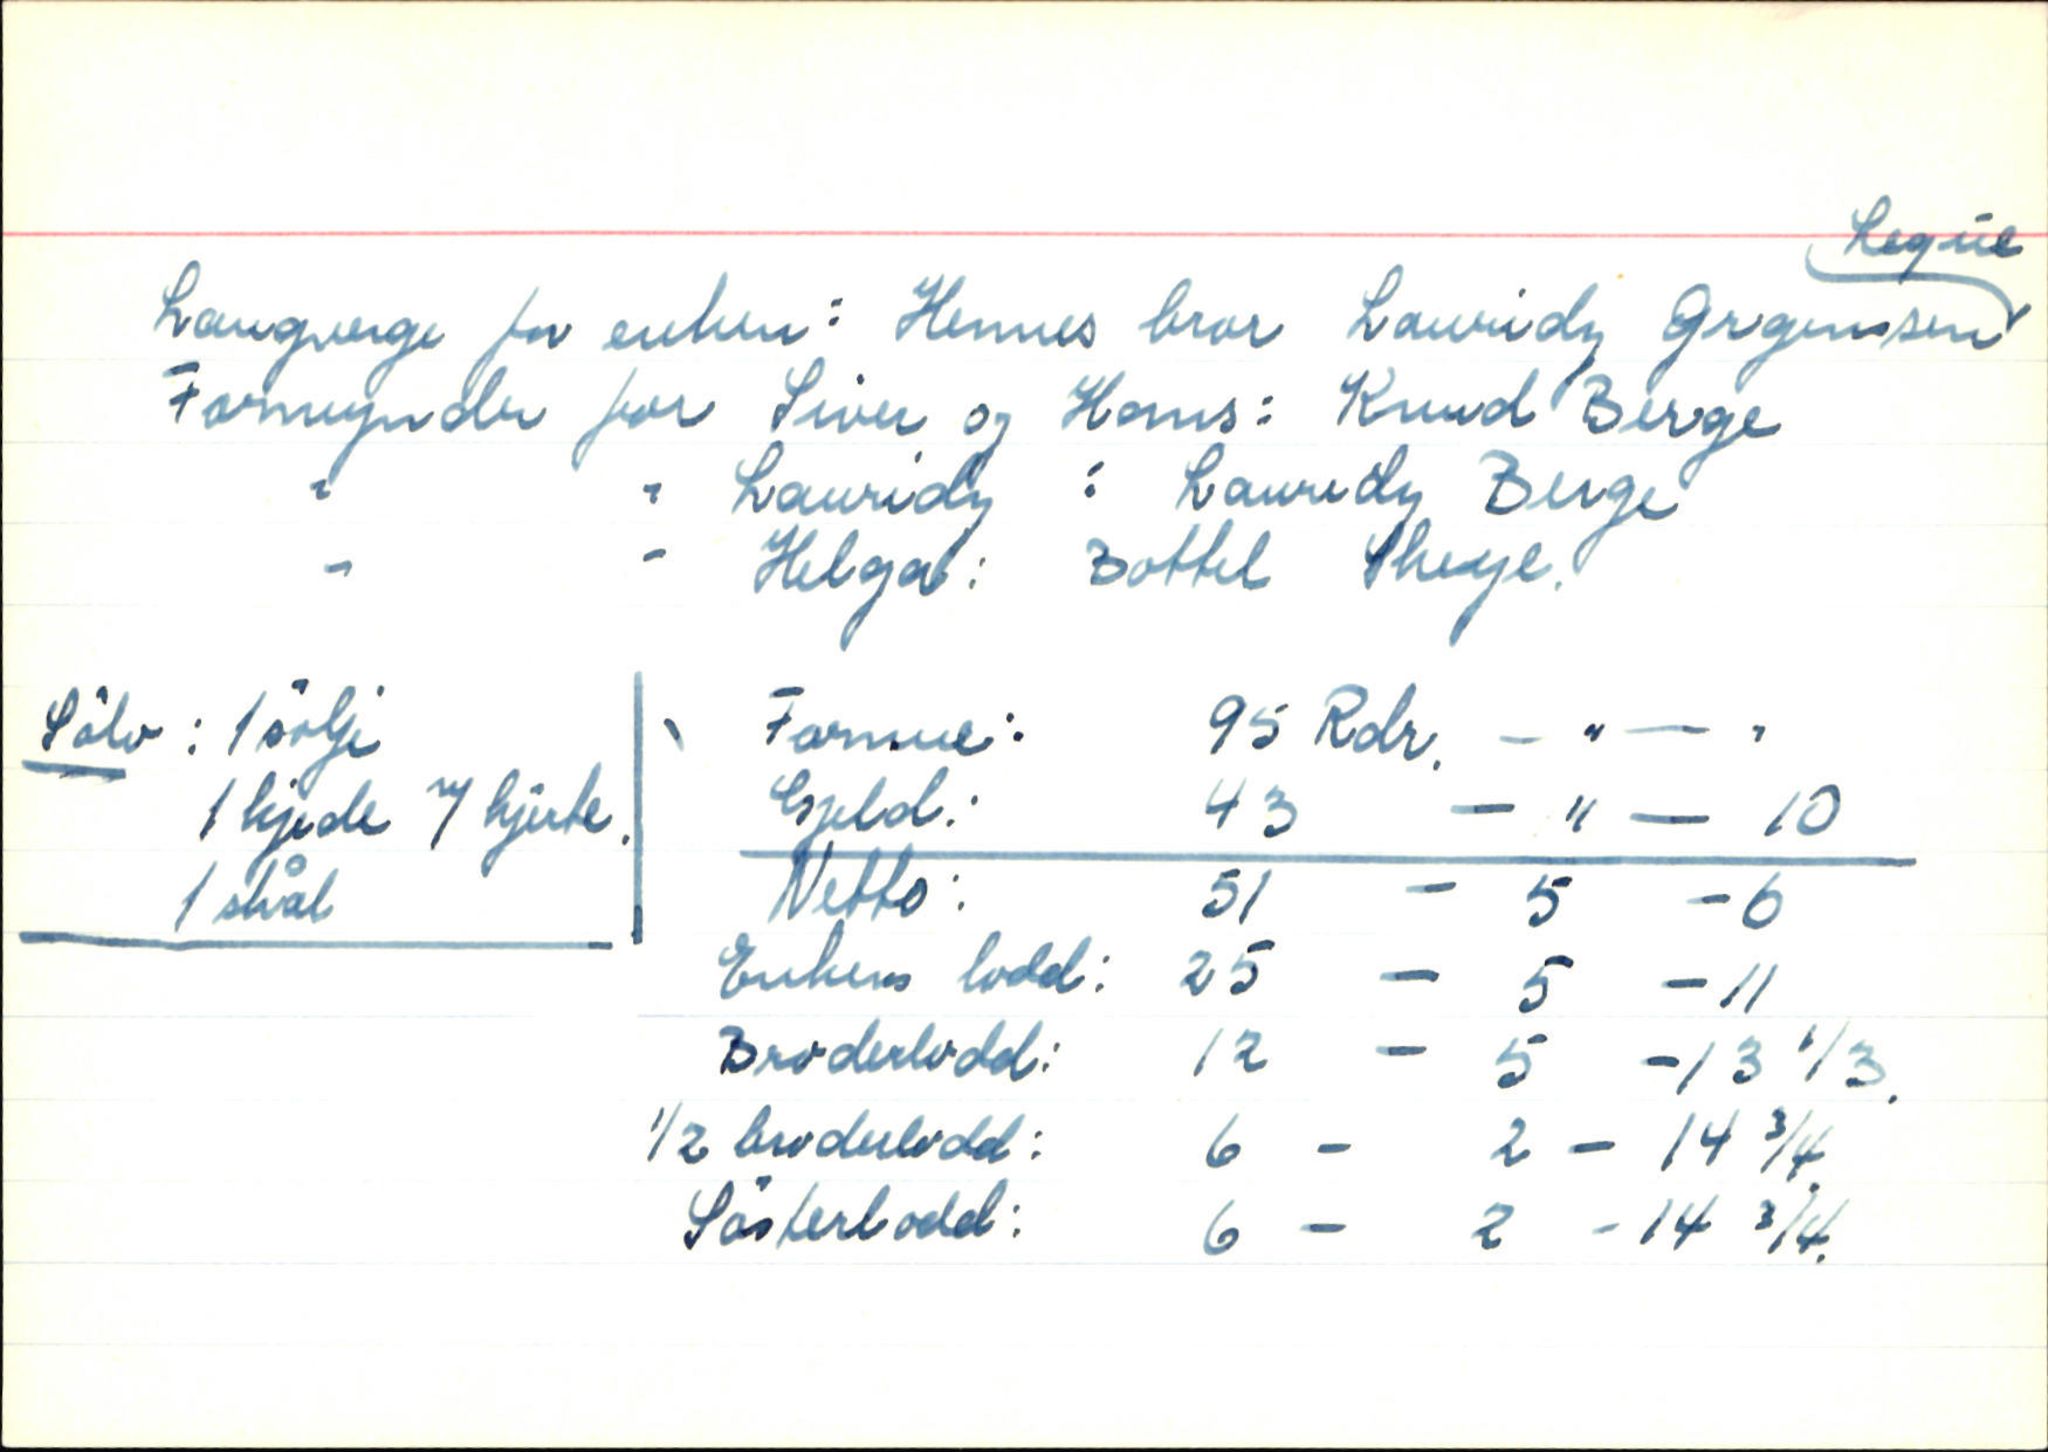 Leqve
Laugverge for enken: Hennes bror Lauridz Ørgensen
Formynder for Siver og Hans: Knud Berge
" " Lauridz : Lauridz Berge
" " Helga: Bottel Skeye.
Sölv: 1 sölje
1 kjede m/ hjerte.
1 skål
Formue: 95 Rdr. - " - "
Gjeld: 43 - " - 10
Netto: 51 - 5 - 6
Enkens lodd: 25 - 5 - 11
Broderlodd: 12 - 5 - 13 1/3.
1/2 broderlodd: 6 - 2 - 14 3/4.
Sösterlodd: 6 - 2 - 14 3/4.